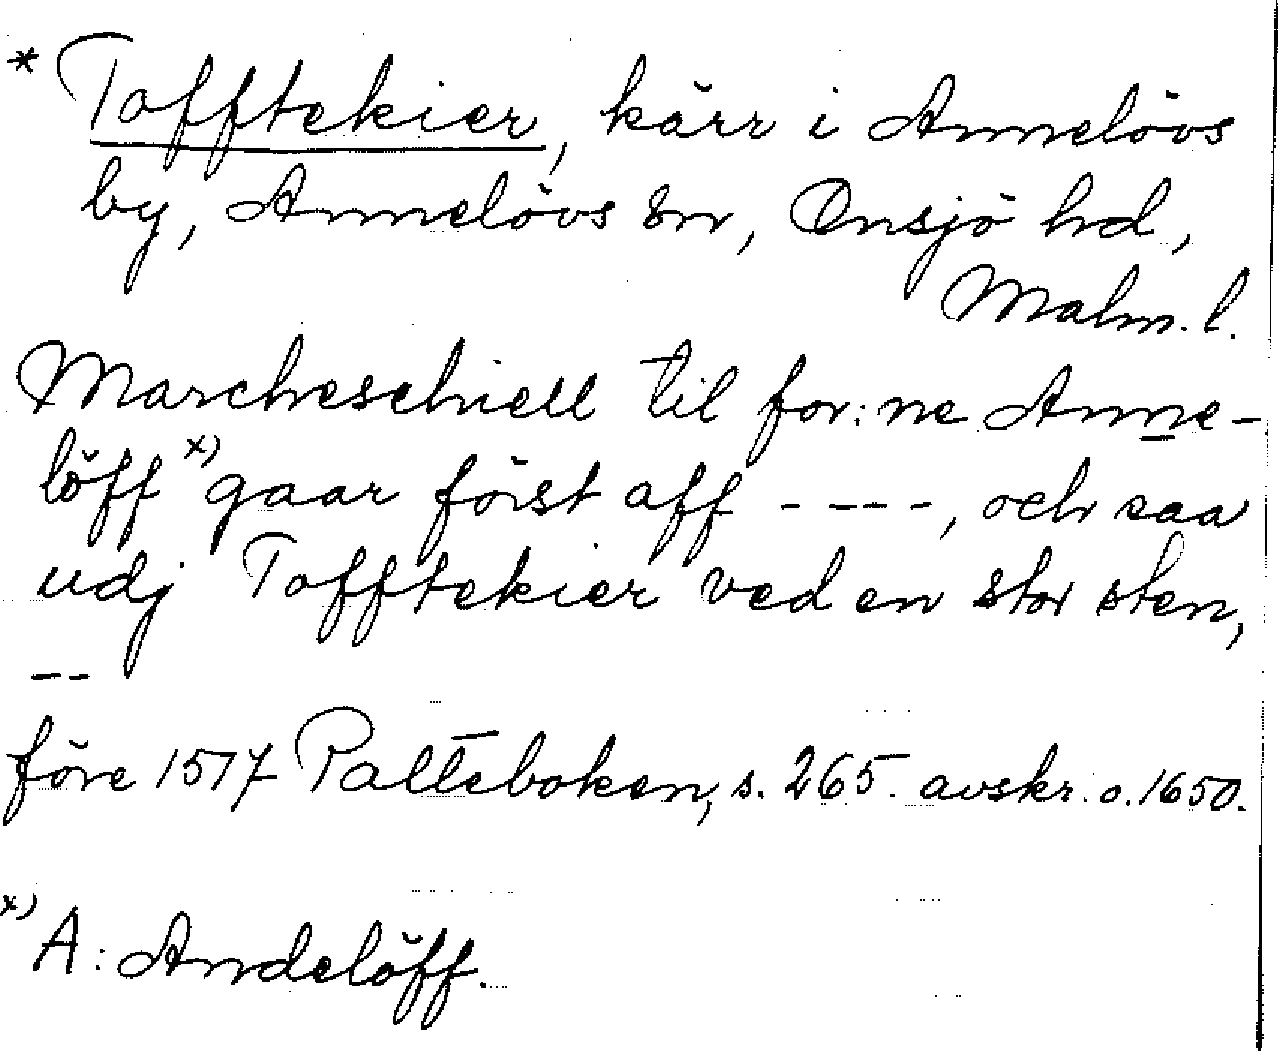 * Tofftekier, kärr i Annelövs
by, Annelövs sn, Onsjö hd,
Malm. l.
Marcheschiell til for:ne Anne-
löff x) gaar först aff ----, och saa
udj Tofftekier ved en stor sten,
--
före 1517 Palteboken, s. 265. avskr. o. 1650.
x) A: Andelöff.